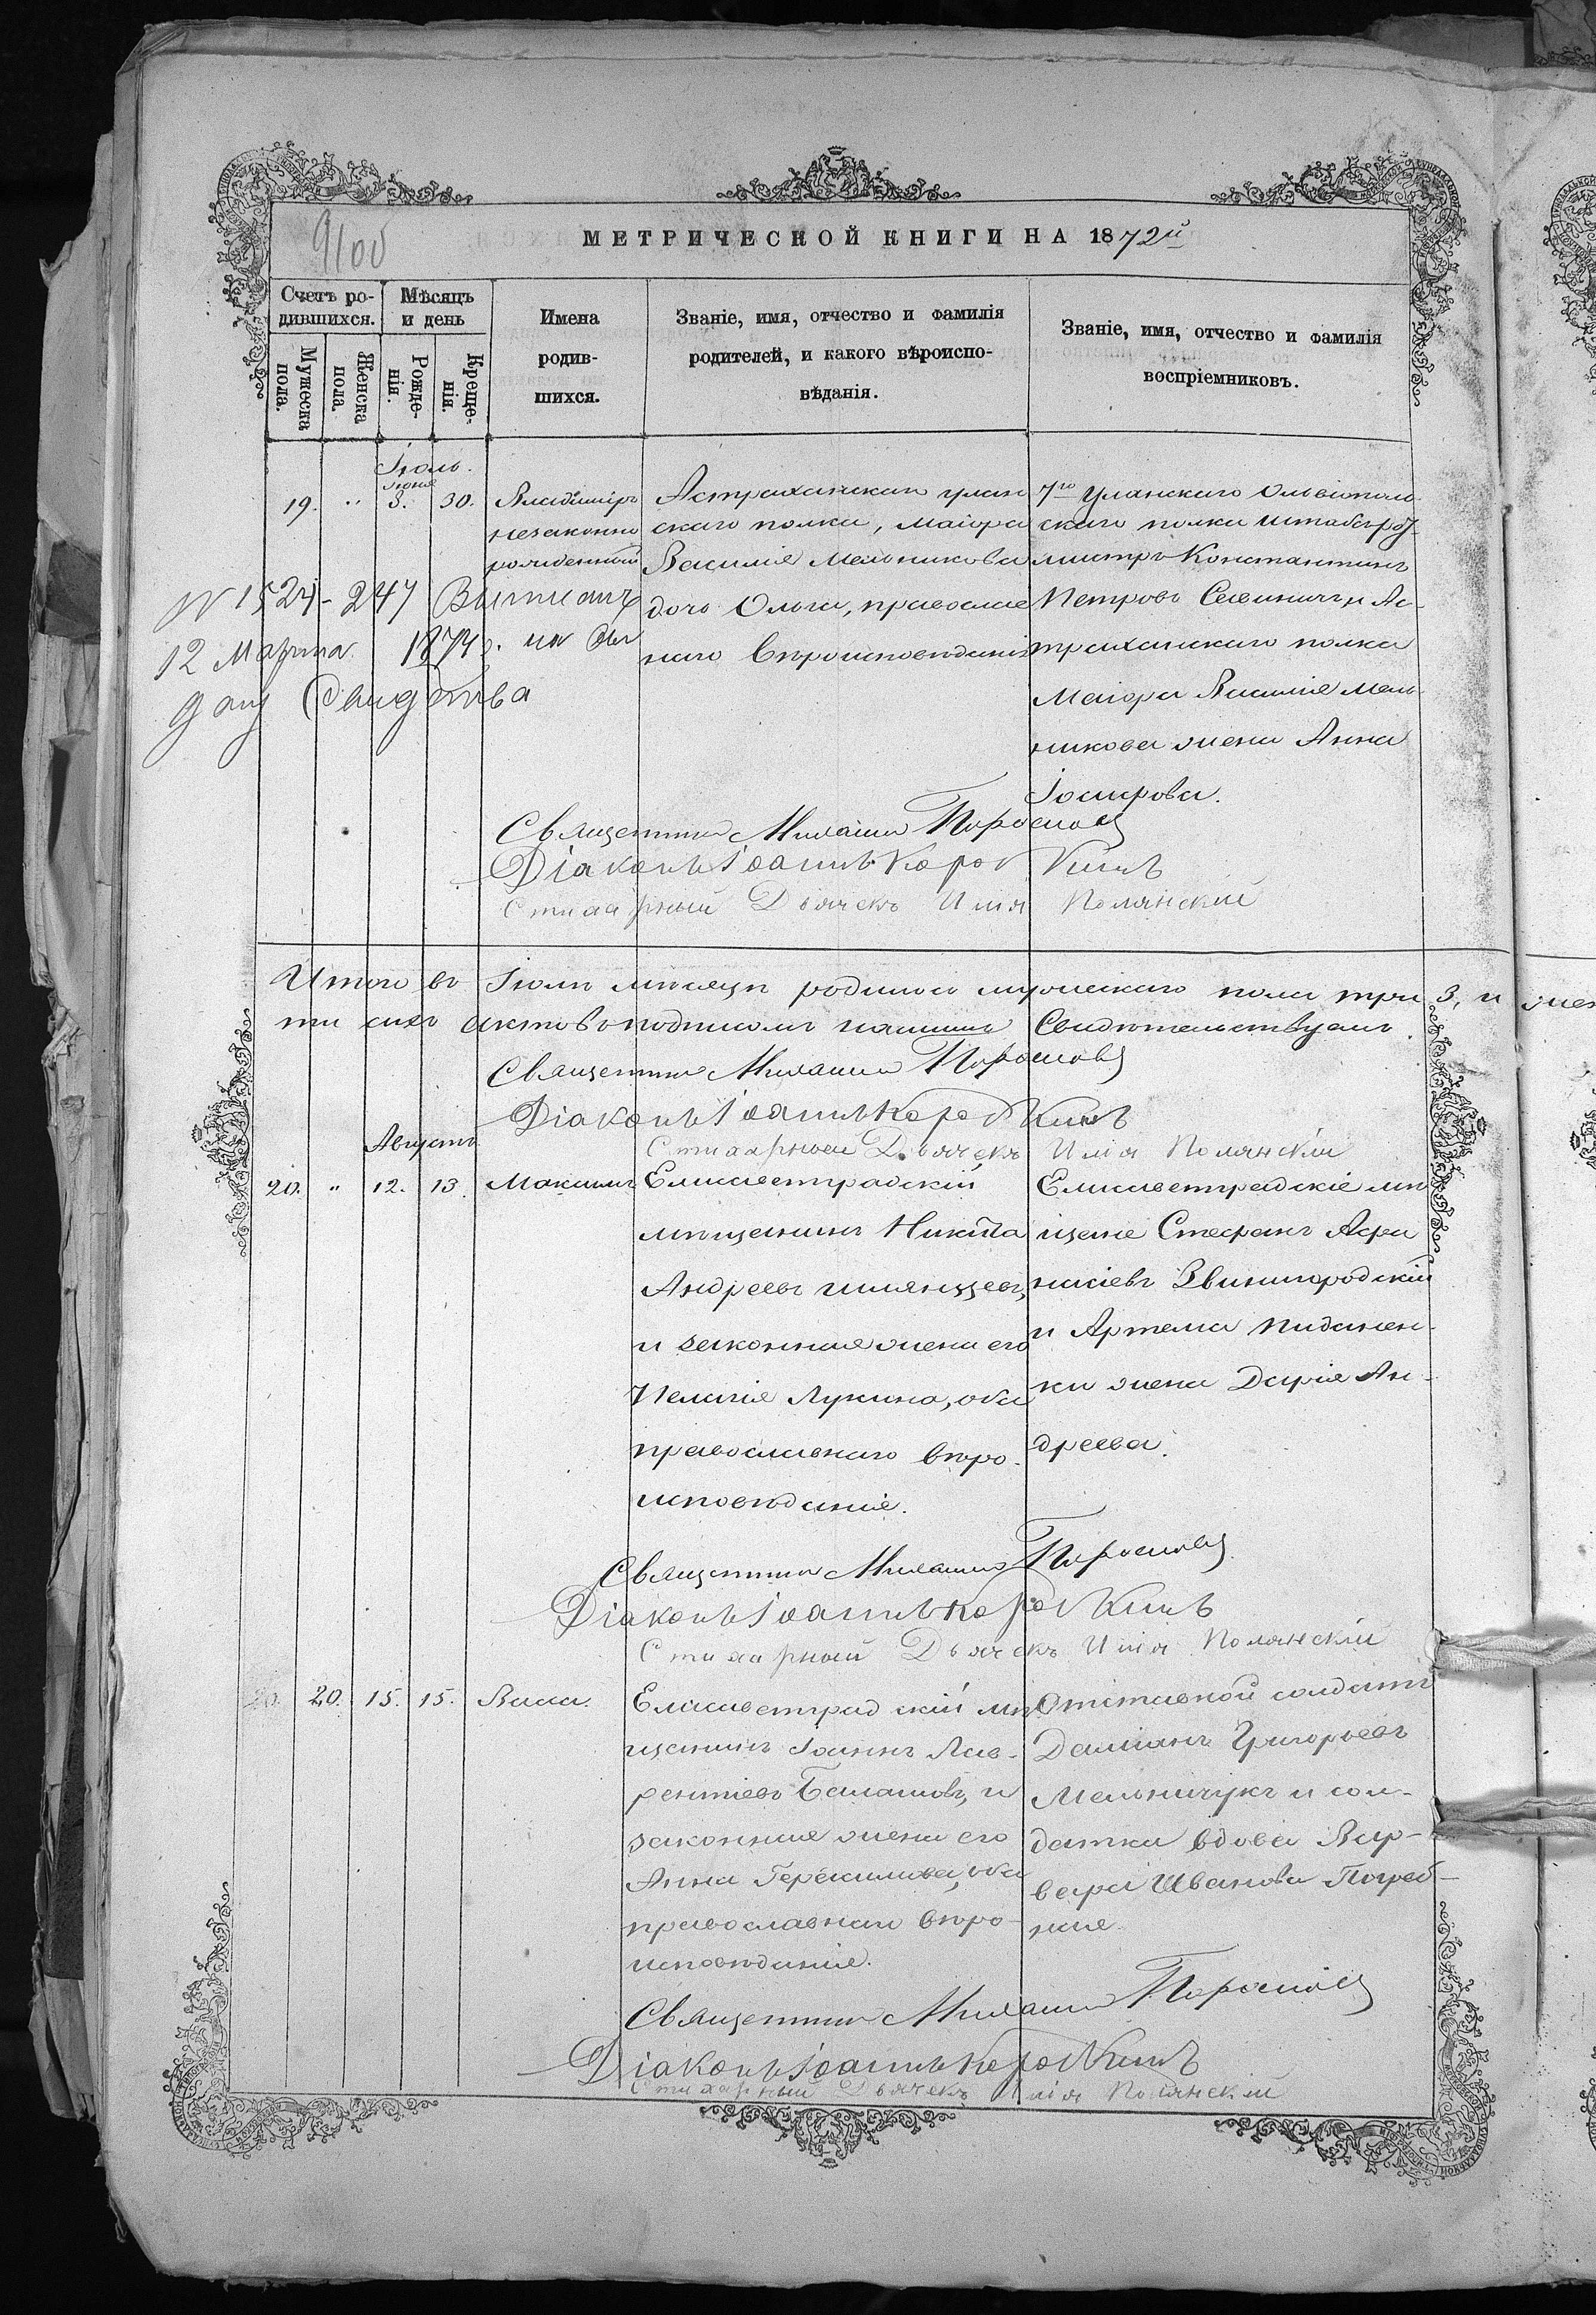 9 об
МЕТРИЧЕСКОЙ КНИГИ НА 1872й
Счетъ ро-
дившихся.
Мѣсяцъ
и день
Мужеска
пола.
Женска
пола.
Рожде-
нія.
Креще-
нія.
Имена
родив-
шихся.
Званіе, имя, отчество и фамилія
родителей, и какого вѣроиспо-
вѣданія.
Званіе, имя, отчество и фамилія
воспріемниковъ.
Іюль.
19. " Іюня 8. 30.
Владиміръ
незаконно
рожденный
Астраханскаго улан
скаго полка, Маіора
Василія Мельникова
дочь Ольга, православ
наго вѣроисповѣданія
7го Уланскаго Ольвіополь
скаго полка Штабсъ-рот-
мистръ Константинъ
Петровъ и Ас-
траханскаго полка
Маіора Василія Мель-
никова жена Анна
Іосифова.
N 1524 - 247
12 Марта 1874 г.
Священникъ Михаилъ
Діаконъ Іоаннъ Короткинъ
Стихарный Дьячекъ Илія Полянскій
Итого въ Іюлѣ мѣсяцѣ родилось мужескаго пола три 3, и жен
сихъ актовъ подписомъ нашимъ Свидѣтельствуемъ.
Священникъ Михаилъ
Діаконъ Іоаннъ Короткинъ
Стихарный Дьячекъ Илія Полянскій
Августъ
20. " 12. 13.
Максимъ
Елисаветградскій
мѣщанинъ Никита
Андреевъ
и законная жена его
Пелагія Лукина, оба
православнаго вѣро-
исповѣданія.
Елисаветградскіе мѣ
щане Стефанъ Афа
насіевъ Звинигородскій
и Артема
жена Дарія Ан-
дреева.
Священникъ Михаилъ
Діаконъ Іоаннъ Короткинъ
Стихарный Дьячекъ Илія Полянскій
20. 15. 15.
Васса.
Елисаветградскій мѣ
щанинъ Іоаннъ Лав-
рентіевъ Балашовъ, и
законная жена его
Анна Герасимова, оба
православнаго вѣро-
исповѣданія.
Отставной солдатъ
Даміанъ Григорьевъ
Мельничукъ и сол-
датка вдова Вар-
вара Иванова Погреб-
ная.
Священникъ Михаилъ
Діаконъ Іоаннъ Короткинъ
Стихарный Дьячекъ Илія Полянскій